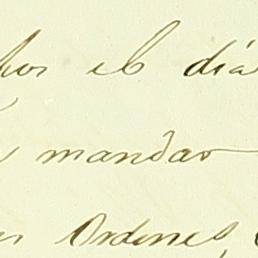 el día
mandar
Ordenes,